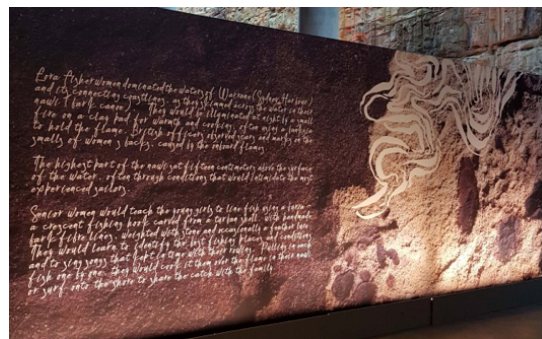 Eora fisherwomen dominated the waters of Warrane (Sydney Harbour)
and its connecting coastlines, as they skimmed across the water in their
nawi (bark canoe). They would be illuminated at night by a small
fire on a clay pad for warmth and cooking, often using a
to hold the flame. British officers observed scars and marks on the
smalls of women's backs, caused by the onboard flames.
The highest part of the nawi sat fifteen centimetres above the surface
of the water, often through conditions that would intimidate the most
experienced sailors.
Senior women would teach the young girls to line fish using a burra
a crescent fishing hook carved from a turban shell, with handmade
bark fibre lines, weighted with stone and occasionally a feather lure.
They would learn to identify the best fishing places and conditions
and to sing songs that kept in time with their rowing. Pulling in each
fish one by one, they would cook it them over the flame in their nawi
or surf onto the shore to share the catch with the family.